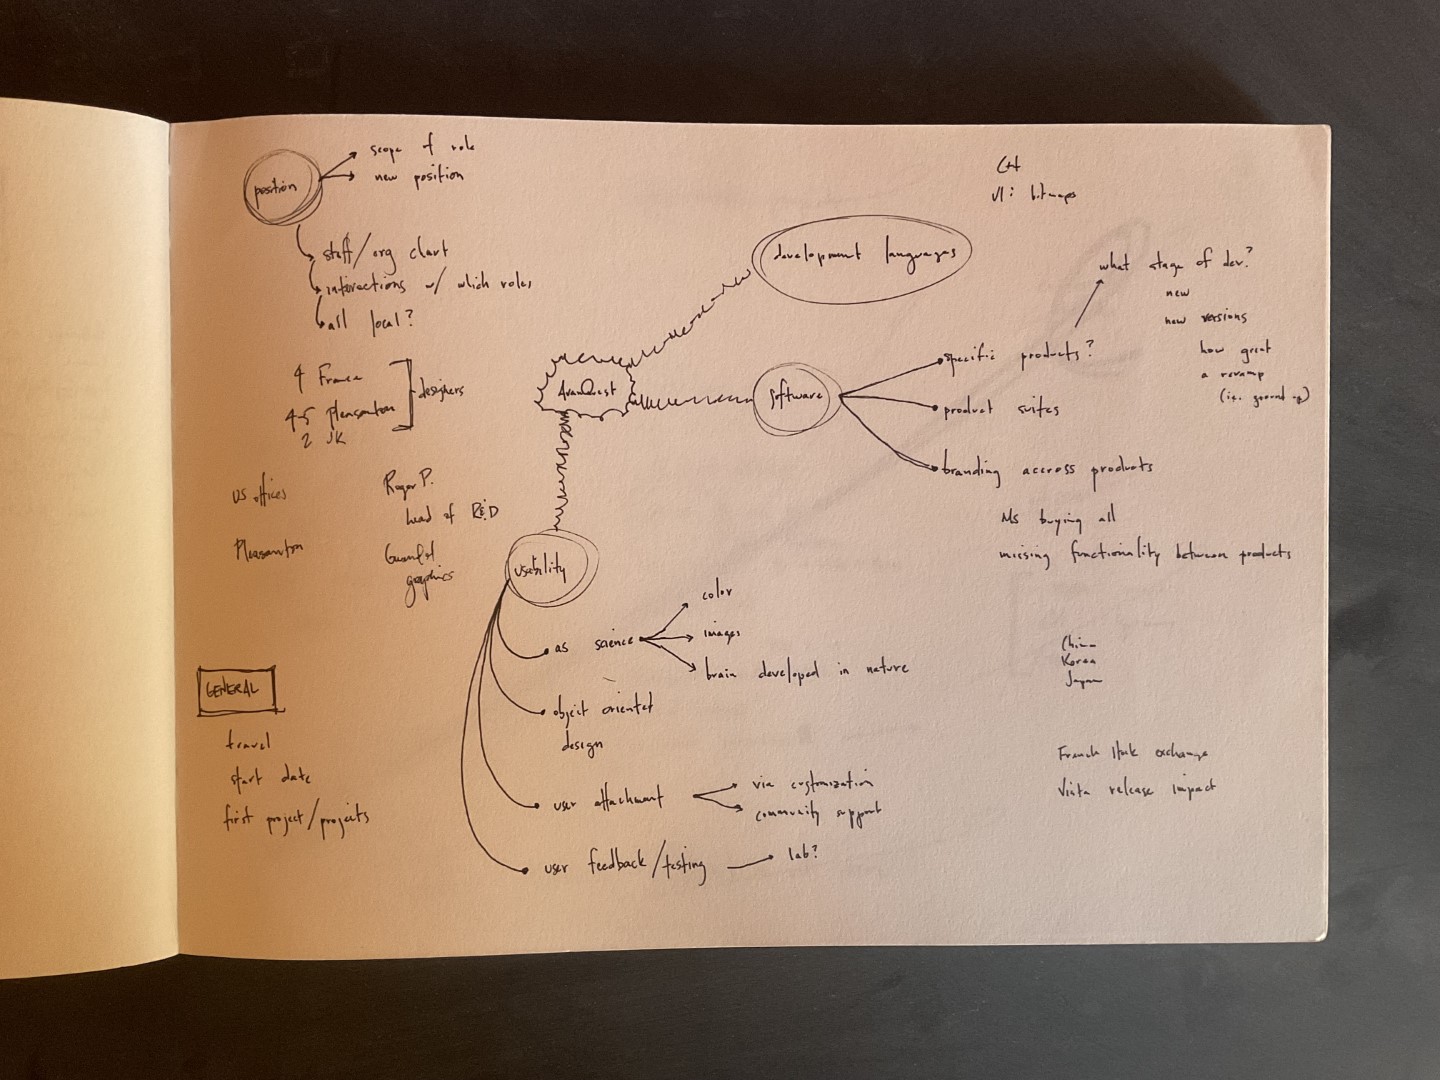 position
scope of role
new position
staff/org chart
interactions w/ which roles
all local?
4 France
4-5 Pleasanton
2 UK
designers
US offices
Pleasanton
Roger P.
head of R&D
graphics
GENERAL
travel
start date
first project/projects
AvanQuest
development languages
C++
UI: bitmaps
software
specific products?
what stage of dev?
new
new versions
how great
a revamp
(i.e. ground up)
product suites
branding accross products
MS buying all
missing functionality between products
usability
as science
color
images
brain developed in nature
object oriented
design
user attachment
via customization
community support
user feedback/testing
lab?
China
Korea
Japan
French stock exchange
Vista release impact